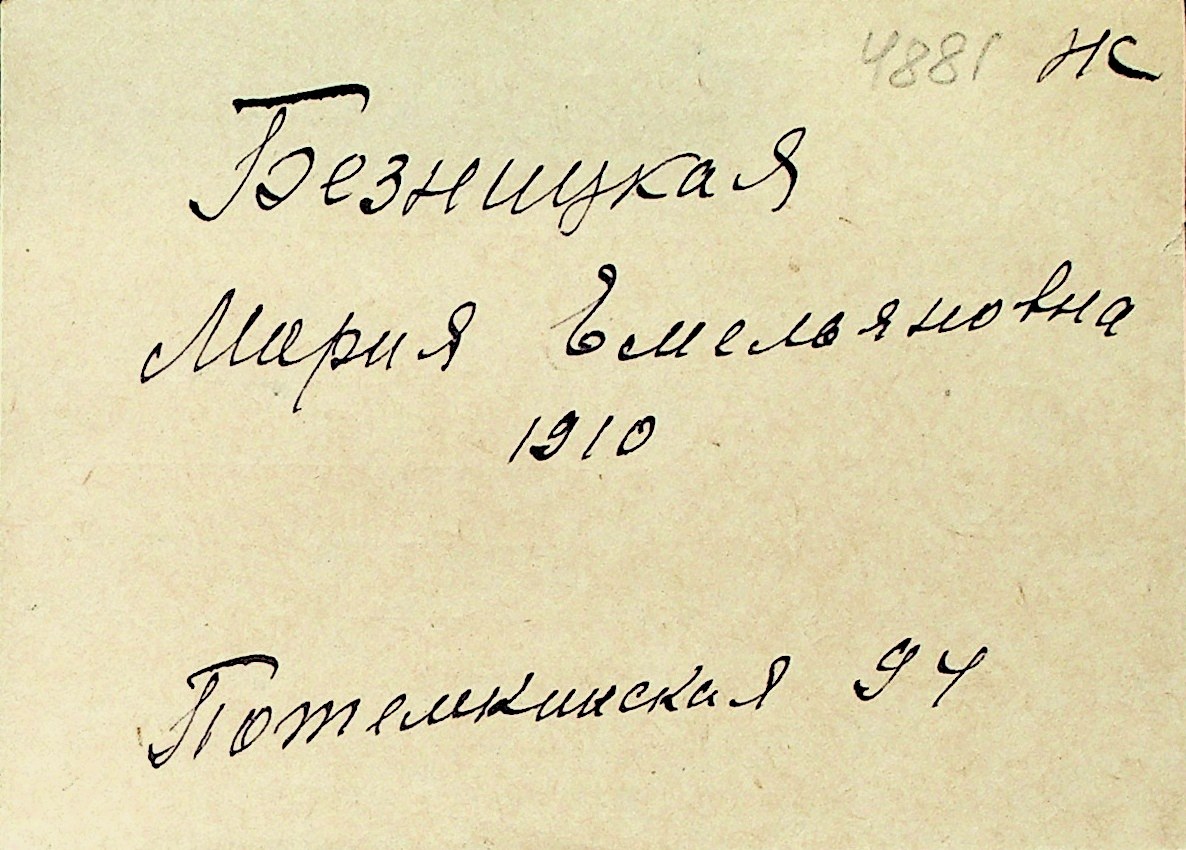 4881 Ж
Безницкая
Мария Емельяновна
1910
Потемкинская 94